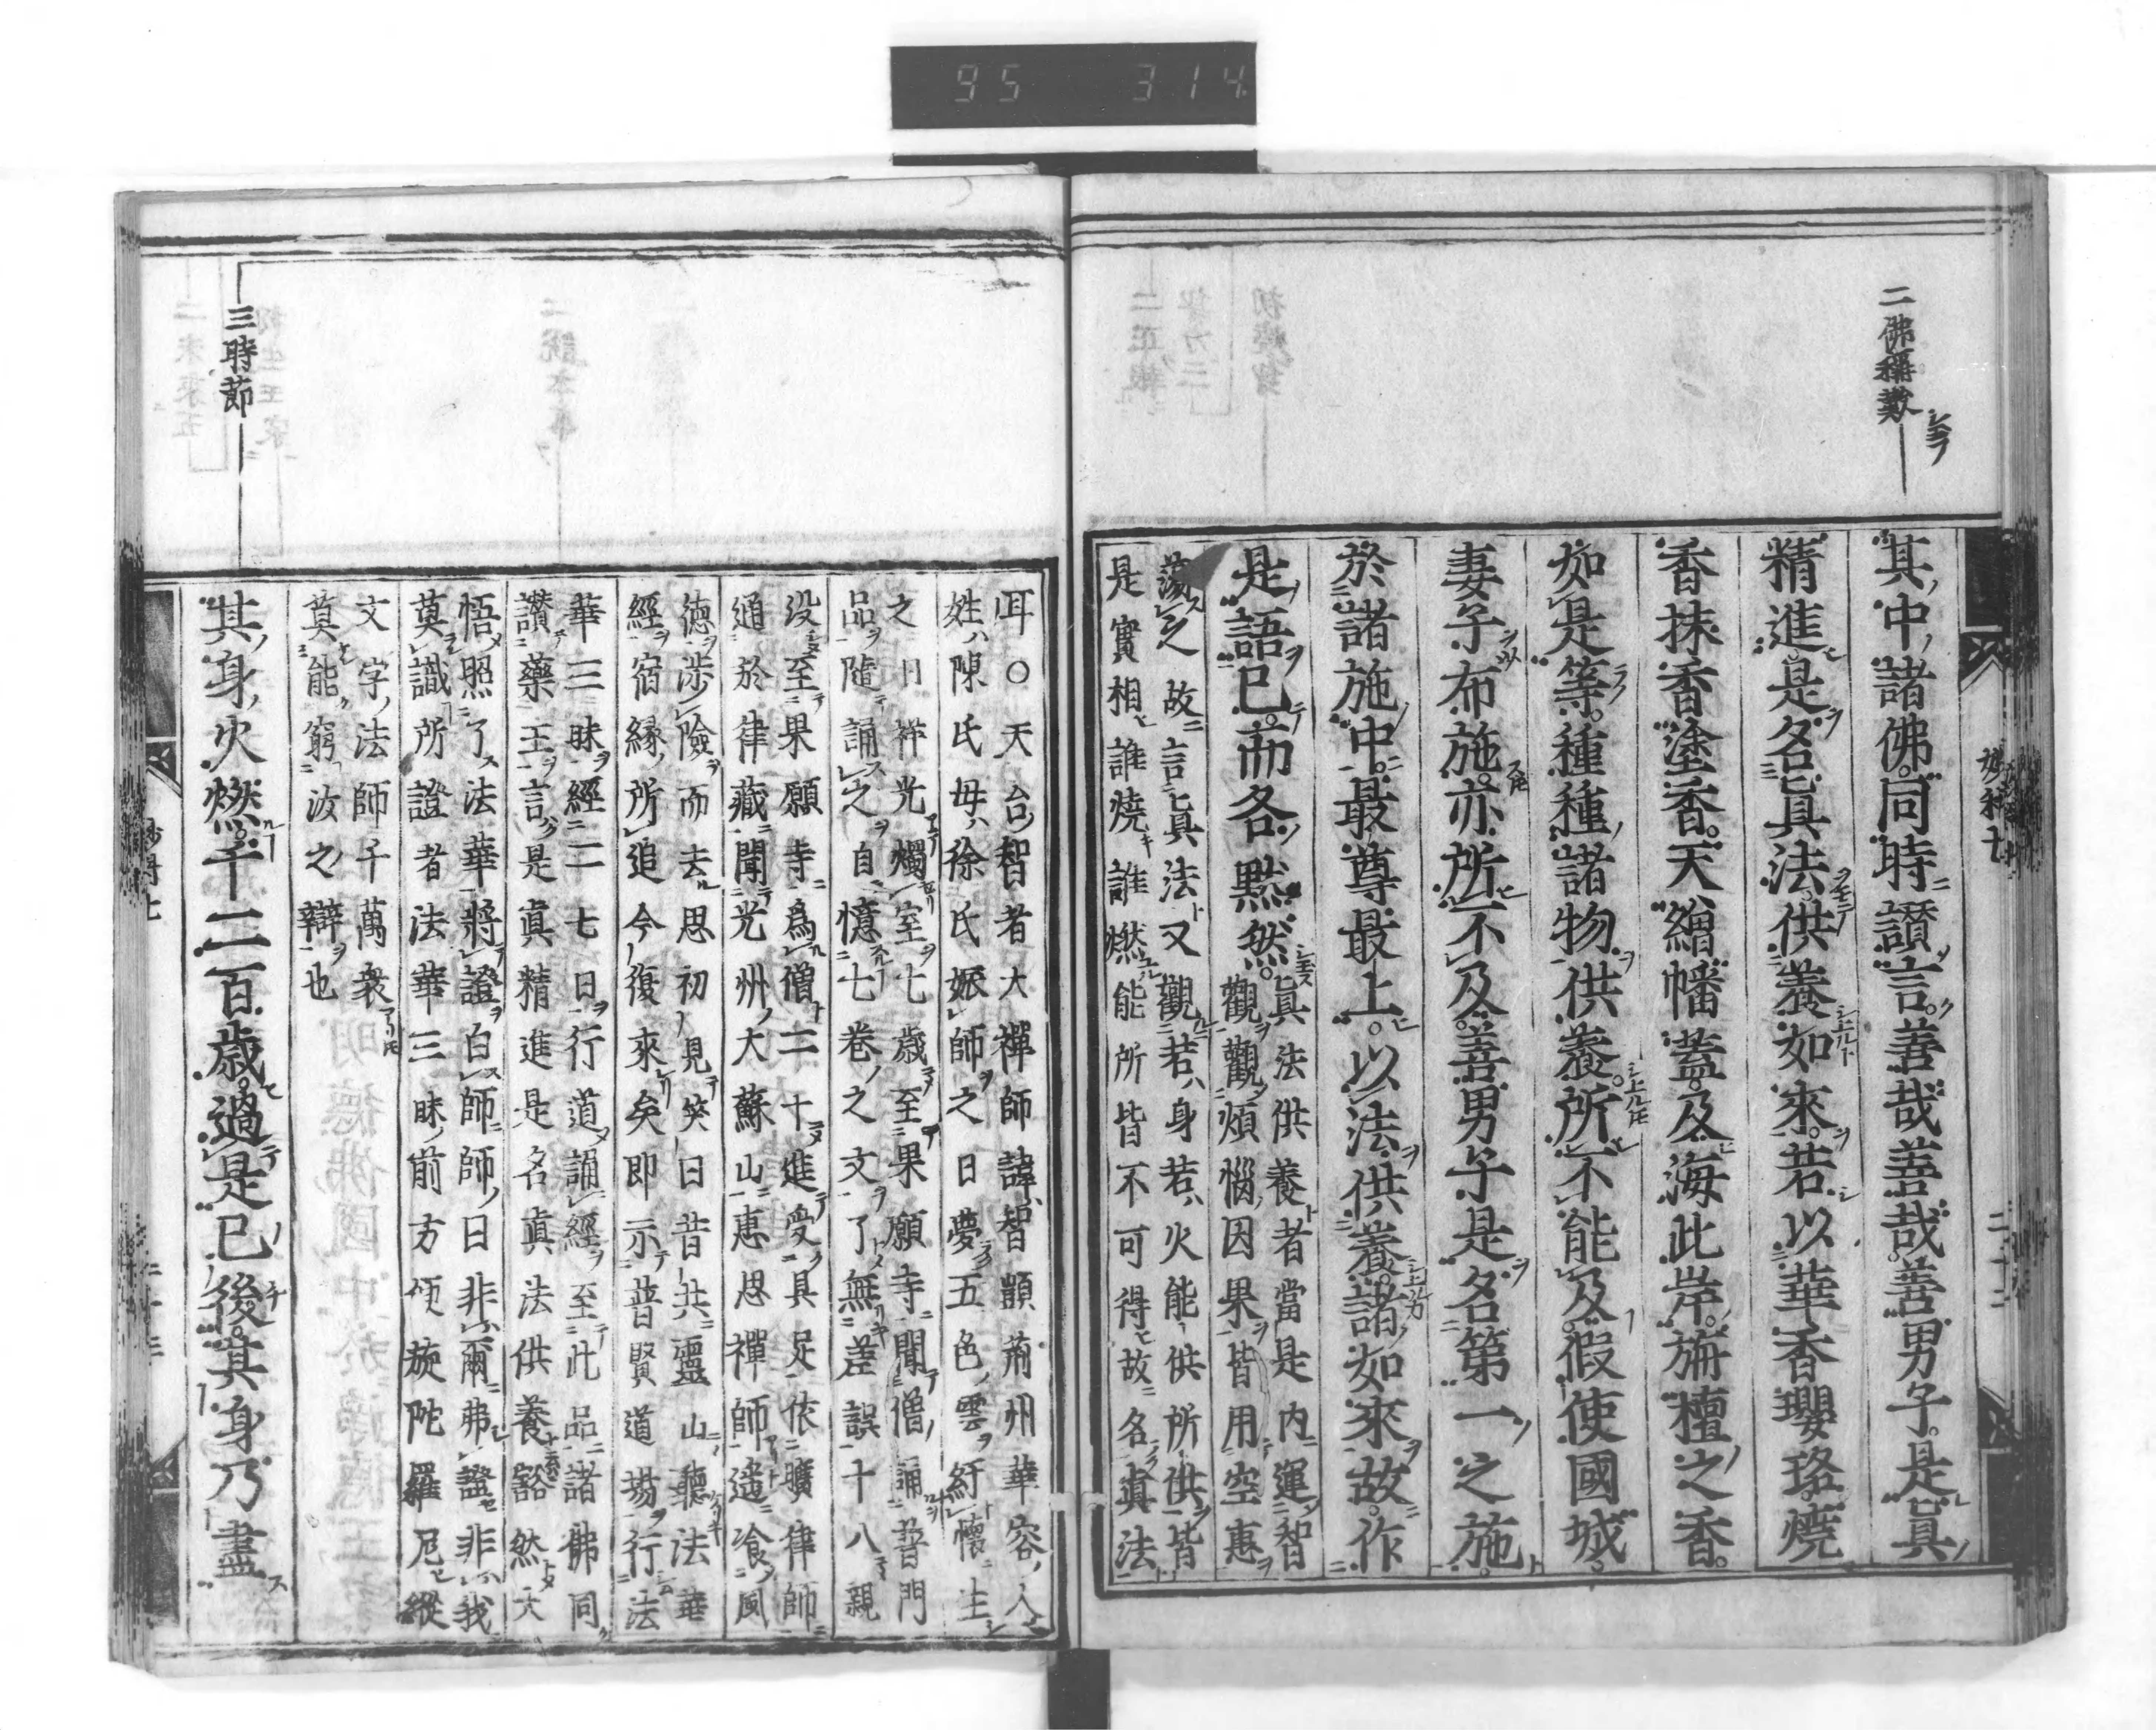 95 314
二佛稱歎
其中諸佛同時讃言善哉善哉善男子是眞
精進是名眞法供養如來若以華香瓔珞燒
香抹香塗香天繒幡蓋及海此岸栴檀之香
如是等種種諸物供養所不能及假使國城
妻子布施亦所不及善男子是名第一之施
於諸施中最尊最上以法供養諸如來故作
是語已而各默然
眞法供養者當是内運智
觀觀煩惱因果皆用空惠
蕩之故言眞法又觀若身若火能供所供皆
是實相誰燒誰燃能所皆不可得故名眞法
三時節
耳○天台智者大禪師諱智顗荊州華容人
姓陳氏母徐氏娠師之日夢五色雲紆懷生
之日祥光燭室七歳至果願寺聞僧誦普門
品隨誦之自憶七卷之文了無差誤十八親
没至果願寺爲僧二十進受具足依曠律師
通於律藏聞光州大蘇山惠思禪師遥飡風
德涉險而去思初見笑曰昔共靈山聽法華
經宿縁所追今復來矣即示普賢道場行法
華三昧經二七日行道誦經至此品諸佛同
讃藥王言是眞精進是名眞法供養豁然大
悟照了法華將證白師師曰非爾弗證非我
莫識所證者法華三昧前方便旋陀羅尼縱
文字法師千萬衆
莫能窮汝之辯也
其身火燃千二百歳過是已後其身乃盡